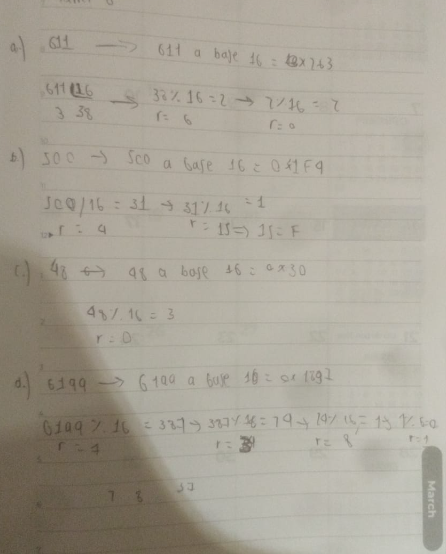 a) 611 → 611 a base 16 = 0x263
611 16 → 38% 16 = 2 → 2/16 = 2
3 38 r = 6 r = 0
b) 500 → 500 a base 16 = 0x1F4
500/16 = 31 → 31% 16 = 1
r = 4 r = 15 => 15 = F
c.) 48 ↔ 48 a base 16 = 0x30
48% 16 = 3
r = 0
d.) 6199 → 6199 a base 16 =
6199% 16 = 387 → 387% 16 = 24 →
r = 7 r = r = 8 r = 1
7 8
March